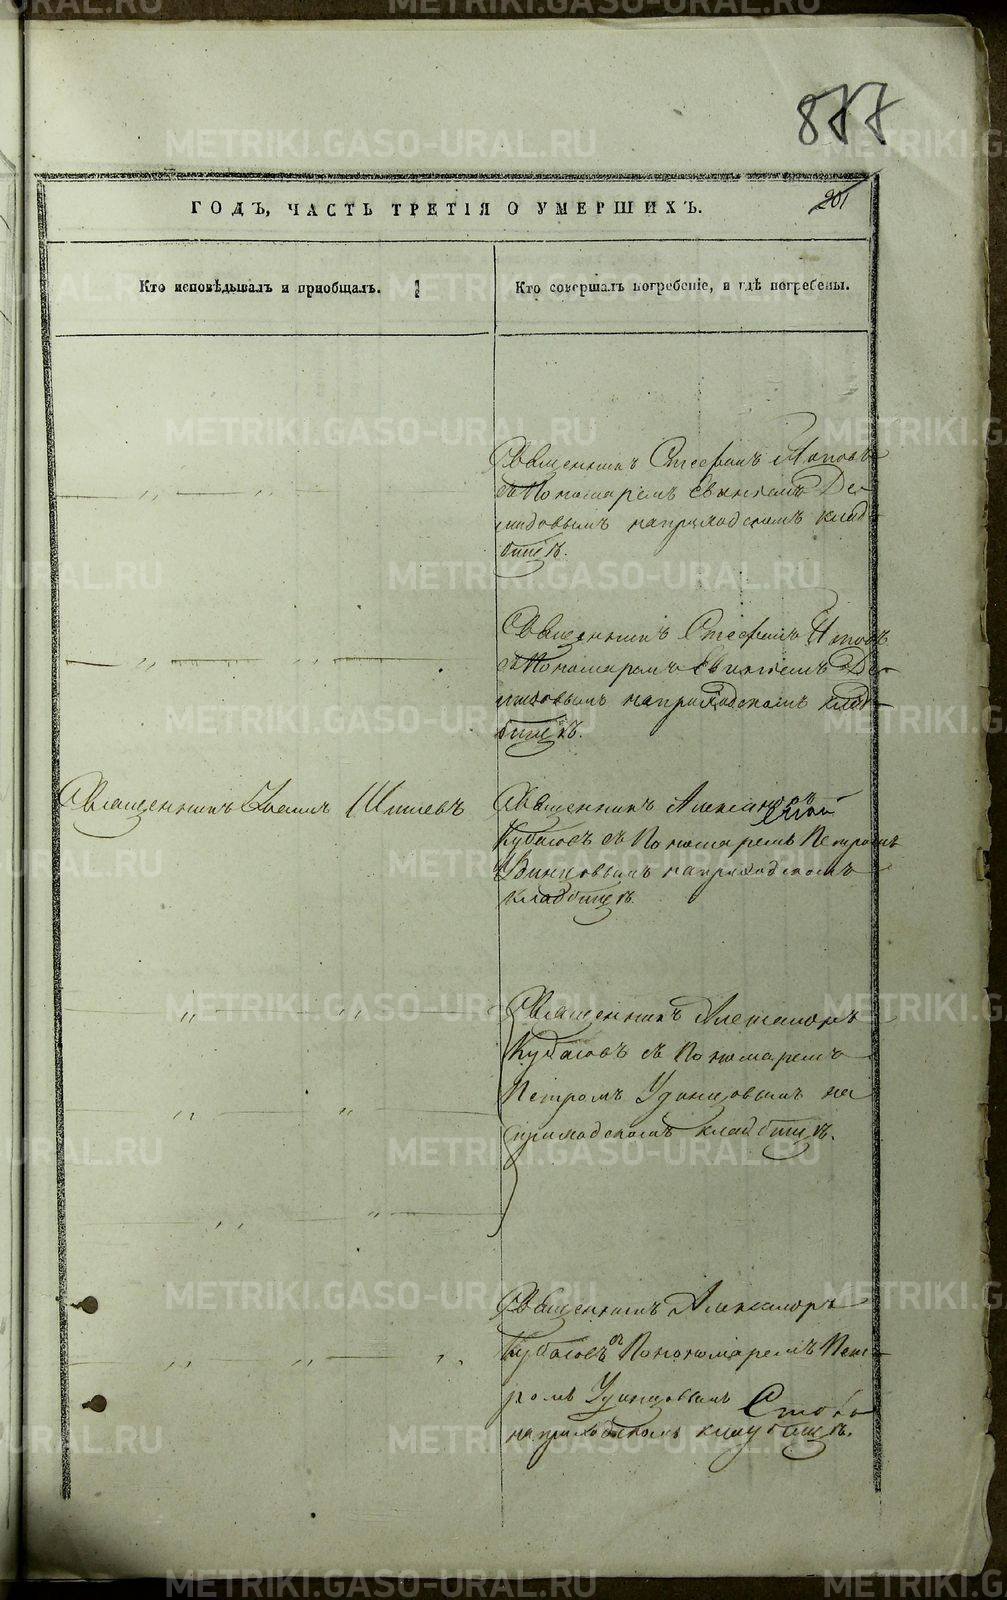 877
201
ГОДЪ, ЧАСТЬ ТРЕТІЯ О УМЕРШИХЪ.
Кто исповѣдывалъ и пріобщалъ.
Кто совершалъ погребеніе, и гдѣ погребены.
Священникъ Стефанъ Поповъ
съ Пономаремъ Евгеніемъ Де-
мидовымъ на приходскомъ клад-
бищѣ.
Священникъ Стефанъ Поповъ
съ Пономаремъ Евгеніемъ Де-
мидовымъ на приходскомъ клад-
бищѣ.
Священникъ Шишевъ
Священникъ Александръ
Кубасовъ съ Пономаремъ Петромъ
Удинцовымъ на приходскомъ
кладбищѣ.
Священникъ Александръ
Кубасовъ съ Пономаремъ
Петромъ Удинцовымъ на
приходскомъ кладбищѣ.
Священникъ Александръ
Кубасовъ съ Пономаремъ Пет-
ромъ Удинцовымъ
на приходскомъ кладбищѣ.
METRIKI.GASO-URAL.RU